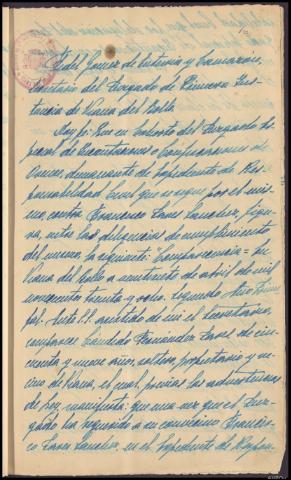 Fidel Gomez de Enterria y Camazón,
Secretario del Juzgado de Primera Ins-
tancia de Viana del Bollo
Doy fé: Que en exhorto del Juzgado Es-
pecial de Incautaciones
Orense, dimanante de expediente de Res-
ponsabilidad Civil que se sigue por el mis-
mo, contra Francisco Sanchez, figu-
ra, entre las diligencias de cumplimiento
del mismo, la siguiente: Comparecencia =
Viana del Bollo a veintisiete de abril de mil
novecientos treinta y ocho. Segundo Año Triun-
fal. Ante S.S. asistido de mi el Secretario,
comparece Candido Fernández de cin-
cuenta y nueve años, soltero, propietario y ve-
cino de Viana, el cual, previas las advertencias
de ley, manifiesta: que una vez que el Juz-
gado ha requerido a su convecino Francis-
co Sanchez, en el expediente de Respon-